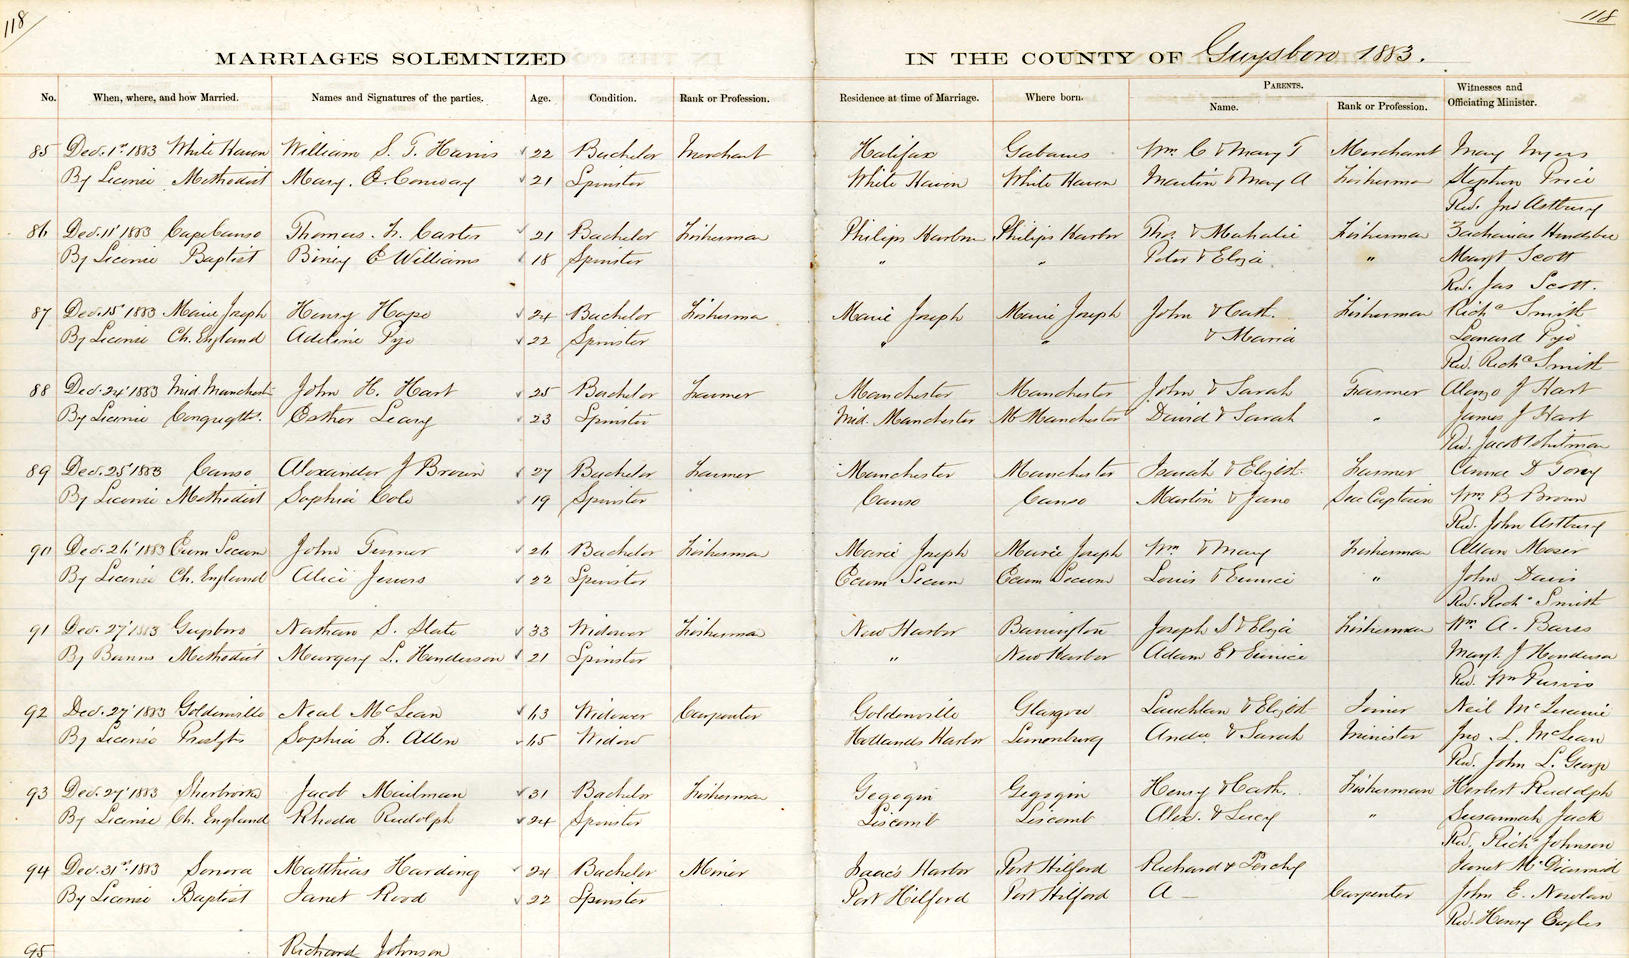 118
118
MARRIAGES SOLEMNIZED IN THE COUNTY OF Guysboro 1883.
No. When, where, and how Married. Names and Signatures of the parties. Age. Condition. Rank or Profession. Residence at time of Marriage. Where born. PARENTS. Name. Rank or Profession. Witnesses and Officiating Minister.
85 Dec. 1st 1883 White Haven William S. T. Harris 22 Bachelor Merchant Halifax Gabarus Wm C & Mary T Merchant Mary Myers
By License Methodist Mary. E. Conway 21 Spinster White Haven White Haven Martin & Mary A Fisherman Stephen Price
Rev. Jno Astbury
86 Dec. 11' 1883 Cape Canso Thomas. F. Carter 21 Bachelor Fisherman Philips Harbor Philips Harbor Thos. & Mahalie Fisherman Zachariah
By License Baptist Biney E Williams 18 Spinster " " Peter & Eliza " Margt Scott
Rev. Jas Scott.
87 Dec. 15' 1883 Marie Joseph Henry Hape 24 Bachelor Fisherma Marie Joseph Marie Joseph John & Cath. Fisherman Richd Smith
By License Ch. England Adeline Pye 22 Spinster " " & Maria Leonard Pye
Rev. Richd Smith
88 Dec. 24' 1883 Mid. Manchest John H. Hart 25 Bachelor Farmer Manchester Manchester John & Sarah Farmer Alonzo J Hart
By License Congregtl. Esther Leary 23 Spinster Mid. Manchester M Manchester David & Sarah " James J Hart
Rev. Jacob Whitman
89 Dec. 25' 1883 Canso Alexander J Brown 27 Bachelor Farmer Manchester Manchester Isaiah & Elizbt. Farmer D Tory
By License Methodist Sophia Cole 19 Spinster Canso Canso Martin & Jane Sea Captain Wm B Brown
Rev. John Astbury
90 Dec. 26' 1883 Ecum Secum John Turner 26 Bachelor Fisherman Marie Joseph Marie Joseph Wm & Mary Fisherman Allan Moser
By License Ch. England Alice Jewers 22 Spinster Ecum Secum Ecum Secum Louis & Eunice " John Davis
Rev. Richd Smith
91 Dec. 27' 1883 Guysboro Nathan S. Slate 33 Widower Fisherman New Harbor Barrington Joseph S & Eliza Fisherman Wm. A. Bares
By Banns Methodist Margery L. Henderson 21 Spinster " New Harbor Adam E & Eunice Margt. J Henderson
Rev. Wm Purvis
92 Dec. 27' 1883 Goldenville Neal McLean 63 Widower Carpenter Goldenville Glasgow Lauchlan & Elizbt Joiner Neil
By License Presbyts Sophia F. Allen 45 Widow Hollands Harbor Lunenburg Andw & Sarah Minister Jno. L. McLean
Rev. John L. George
93 Dec. 27' 1883 Sherbrooke Jacob Mailman 31 Bachelor Fisherman Gegogin Gegogin Henry & Cath. Fisherman Herbert Rudolph
By License Ch. England Rhoda Rudolph 24 Spinster Liscomb Liscomb Alex. & Lucy " Susannah Jack
Rev. Richd Johnson
94 Dec. 31st 1883 Sonora Matthias Harding 24 Bachelor Miner Isaac's Harbor Port Hilford Richard & Janet McDiarmid
By License Baptist Janet Rood 22 Spinster Port Hilford Port Hilford A — Carpenter John E. Nowlan
Rev. Henry Eagles
95 Richard Johnson